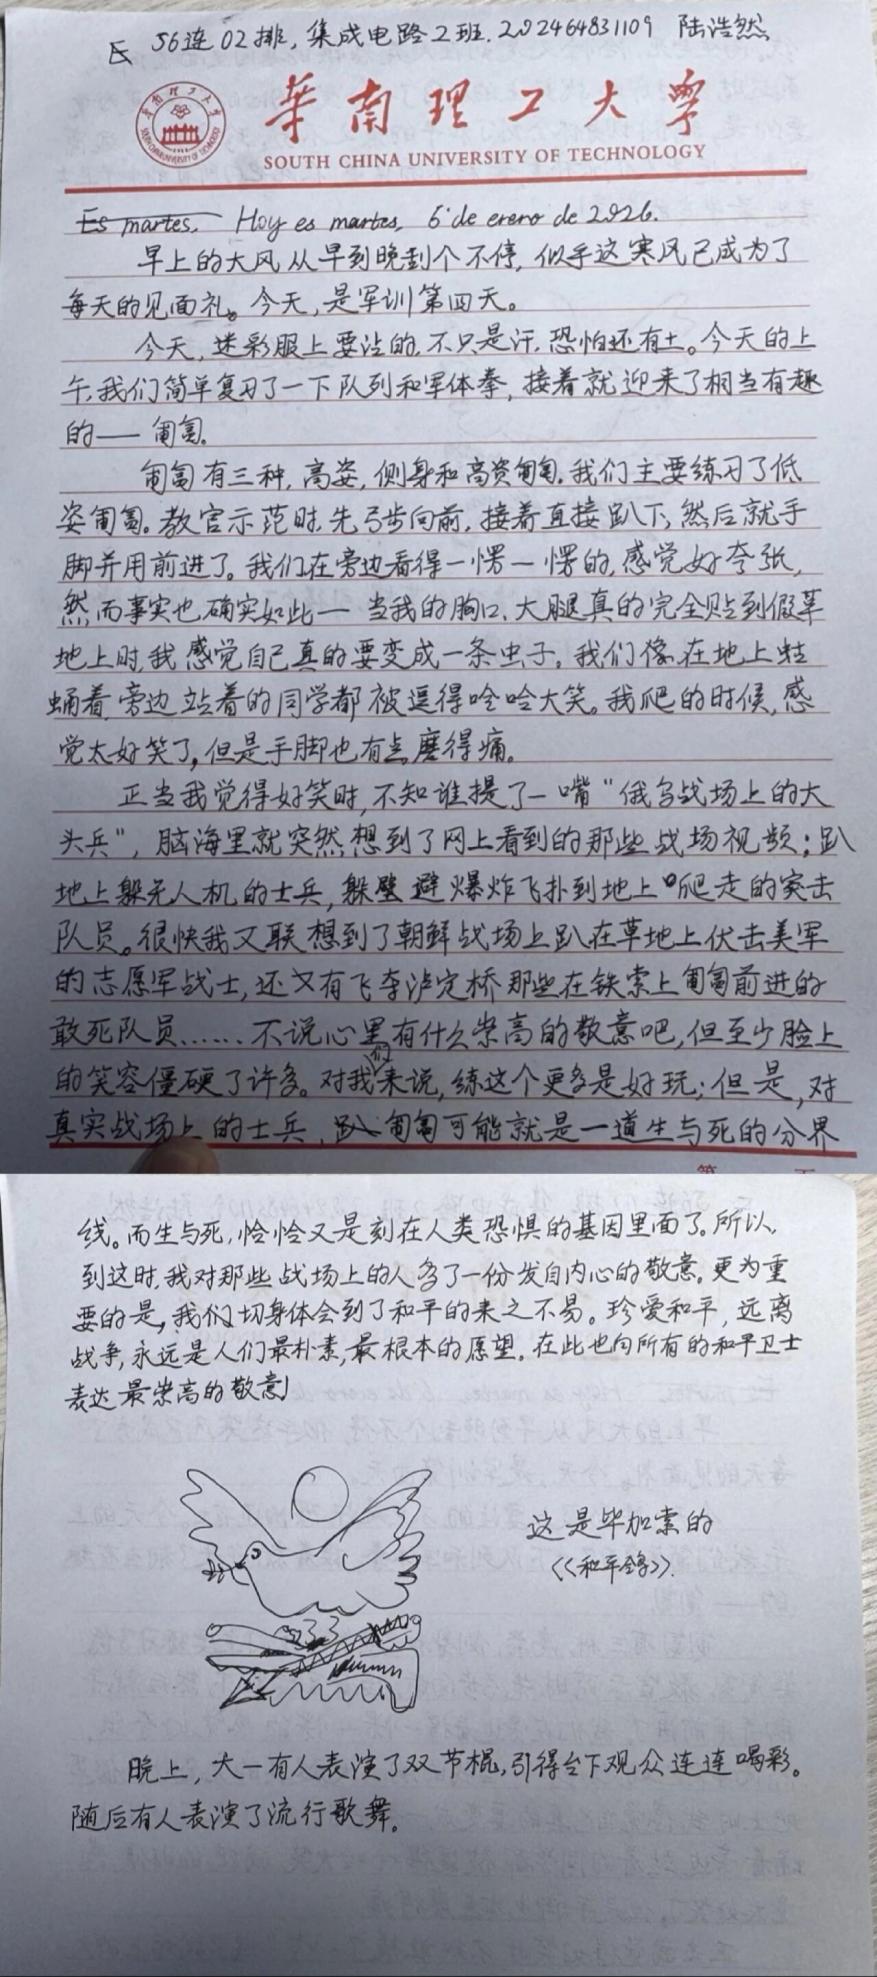 56连02排，集成电路2班. 202464831109 陆浩然
華南理工大學
SOUTH CHINA UNIVERSITY OF TECHNOLOGY
Es martes. Hoy es martes, 6 de enero de 2026.
早上的大风从早到晚刮个不停，似乎这寒风已成为了
每天的见面礼。今天，是军训第四天。
今天，迷彩服上要沾的，不只是汗，恐怕还有土。今天的上
午，我们简单复习了一下队列和军体拳，接着就迎来了相当有趣
的——匍匐。
匍匐有三种，高姿，侧身和高姿匍匐。我们主要练习了低
姿匍匐。教官示范时，先弓步向前，接着直接趴下，然后就手
脚并用前进了。我们在旁边看得一愣一愣的，感觉好夸张，
然而事实也确实如此——当我的胸口、大腿真的完全贴到假草
地上时，我感觉自己真的要变成一条虫子。我们像在地上蛄
蛹着，旁边站着的同学都被逗得哈哈大笑。我爬的时候，感
觉太好笑了，但是手脚也有点磨得痛。
正当我觉得好笑时，不知谁提了一嘴“俄乌战场上的大
头兵”，脑海里就突然想到了网上看到的那些战场视频；趴
地上躲无人机的士兵，躲避爆炸飞扑到地上爬走的突击
队员。很快我又联想到了朝鲜战场上趴在草地上伏击美军
的志愿军战士，还又有飞夺泸定桥那些在铁索上匍匐前进的
敢死队员……不说心里有什么崇高的敬意吧，但至少脸上
的笑容僵硬了许多。对我们来说，练这个更多是好玩；但是，对
真实战场上的士兵，匍匐可能就是一道生与死的分界
线。而生与死，恰恰又是刻在人类恐惧的基因里面了。所以，
到这时，我对那些战场上的人多了一份发自内心的敬意。更为重
要的是，我们切身体会到了和平的来之不易。珍爱和平，远离
战争，永远是人们最朴素，最根本的愿望。在此也向所有的和平卫士
表达最崇高的敬意！
这是毕加索的
《和平鸽》.
晚上，大一有人表演了双节棍，引得台下观众连连喝彩。
随后有人表演了流行歌舞。